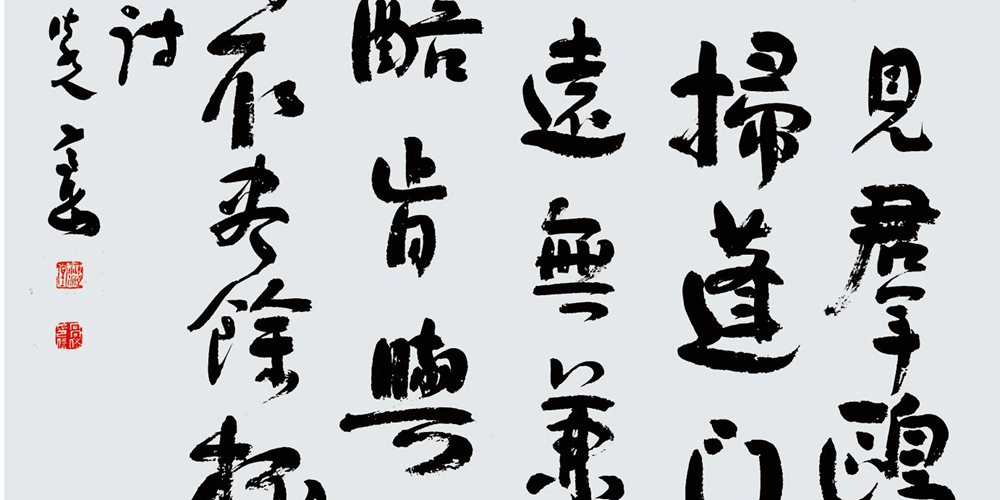 見羣鷗
掃蓬門
遠無兼
醅肯與
取盡餘杯
詩